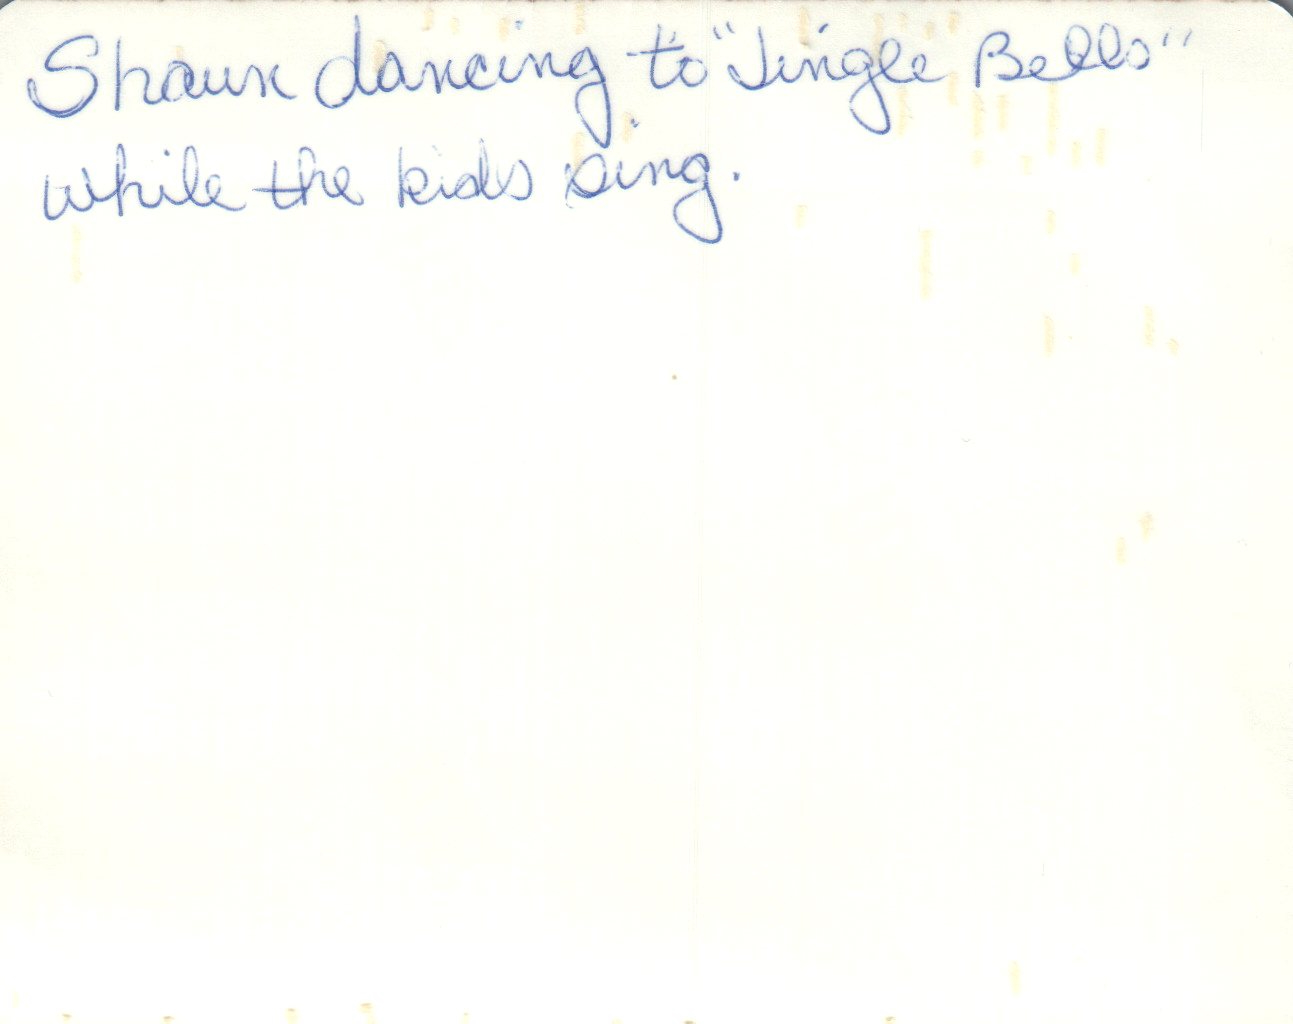 Shaun dancing to "Jingle Bells"
while the kids sing.